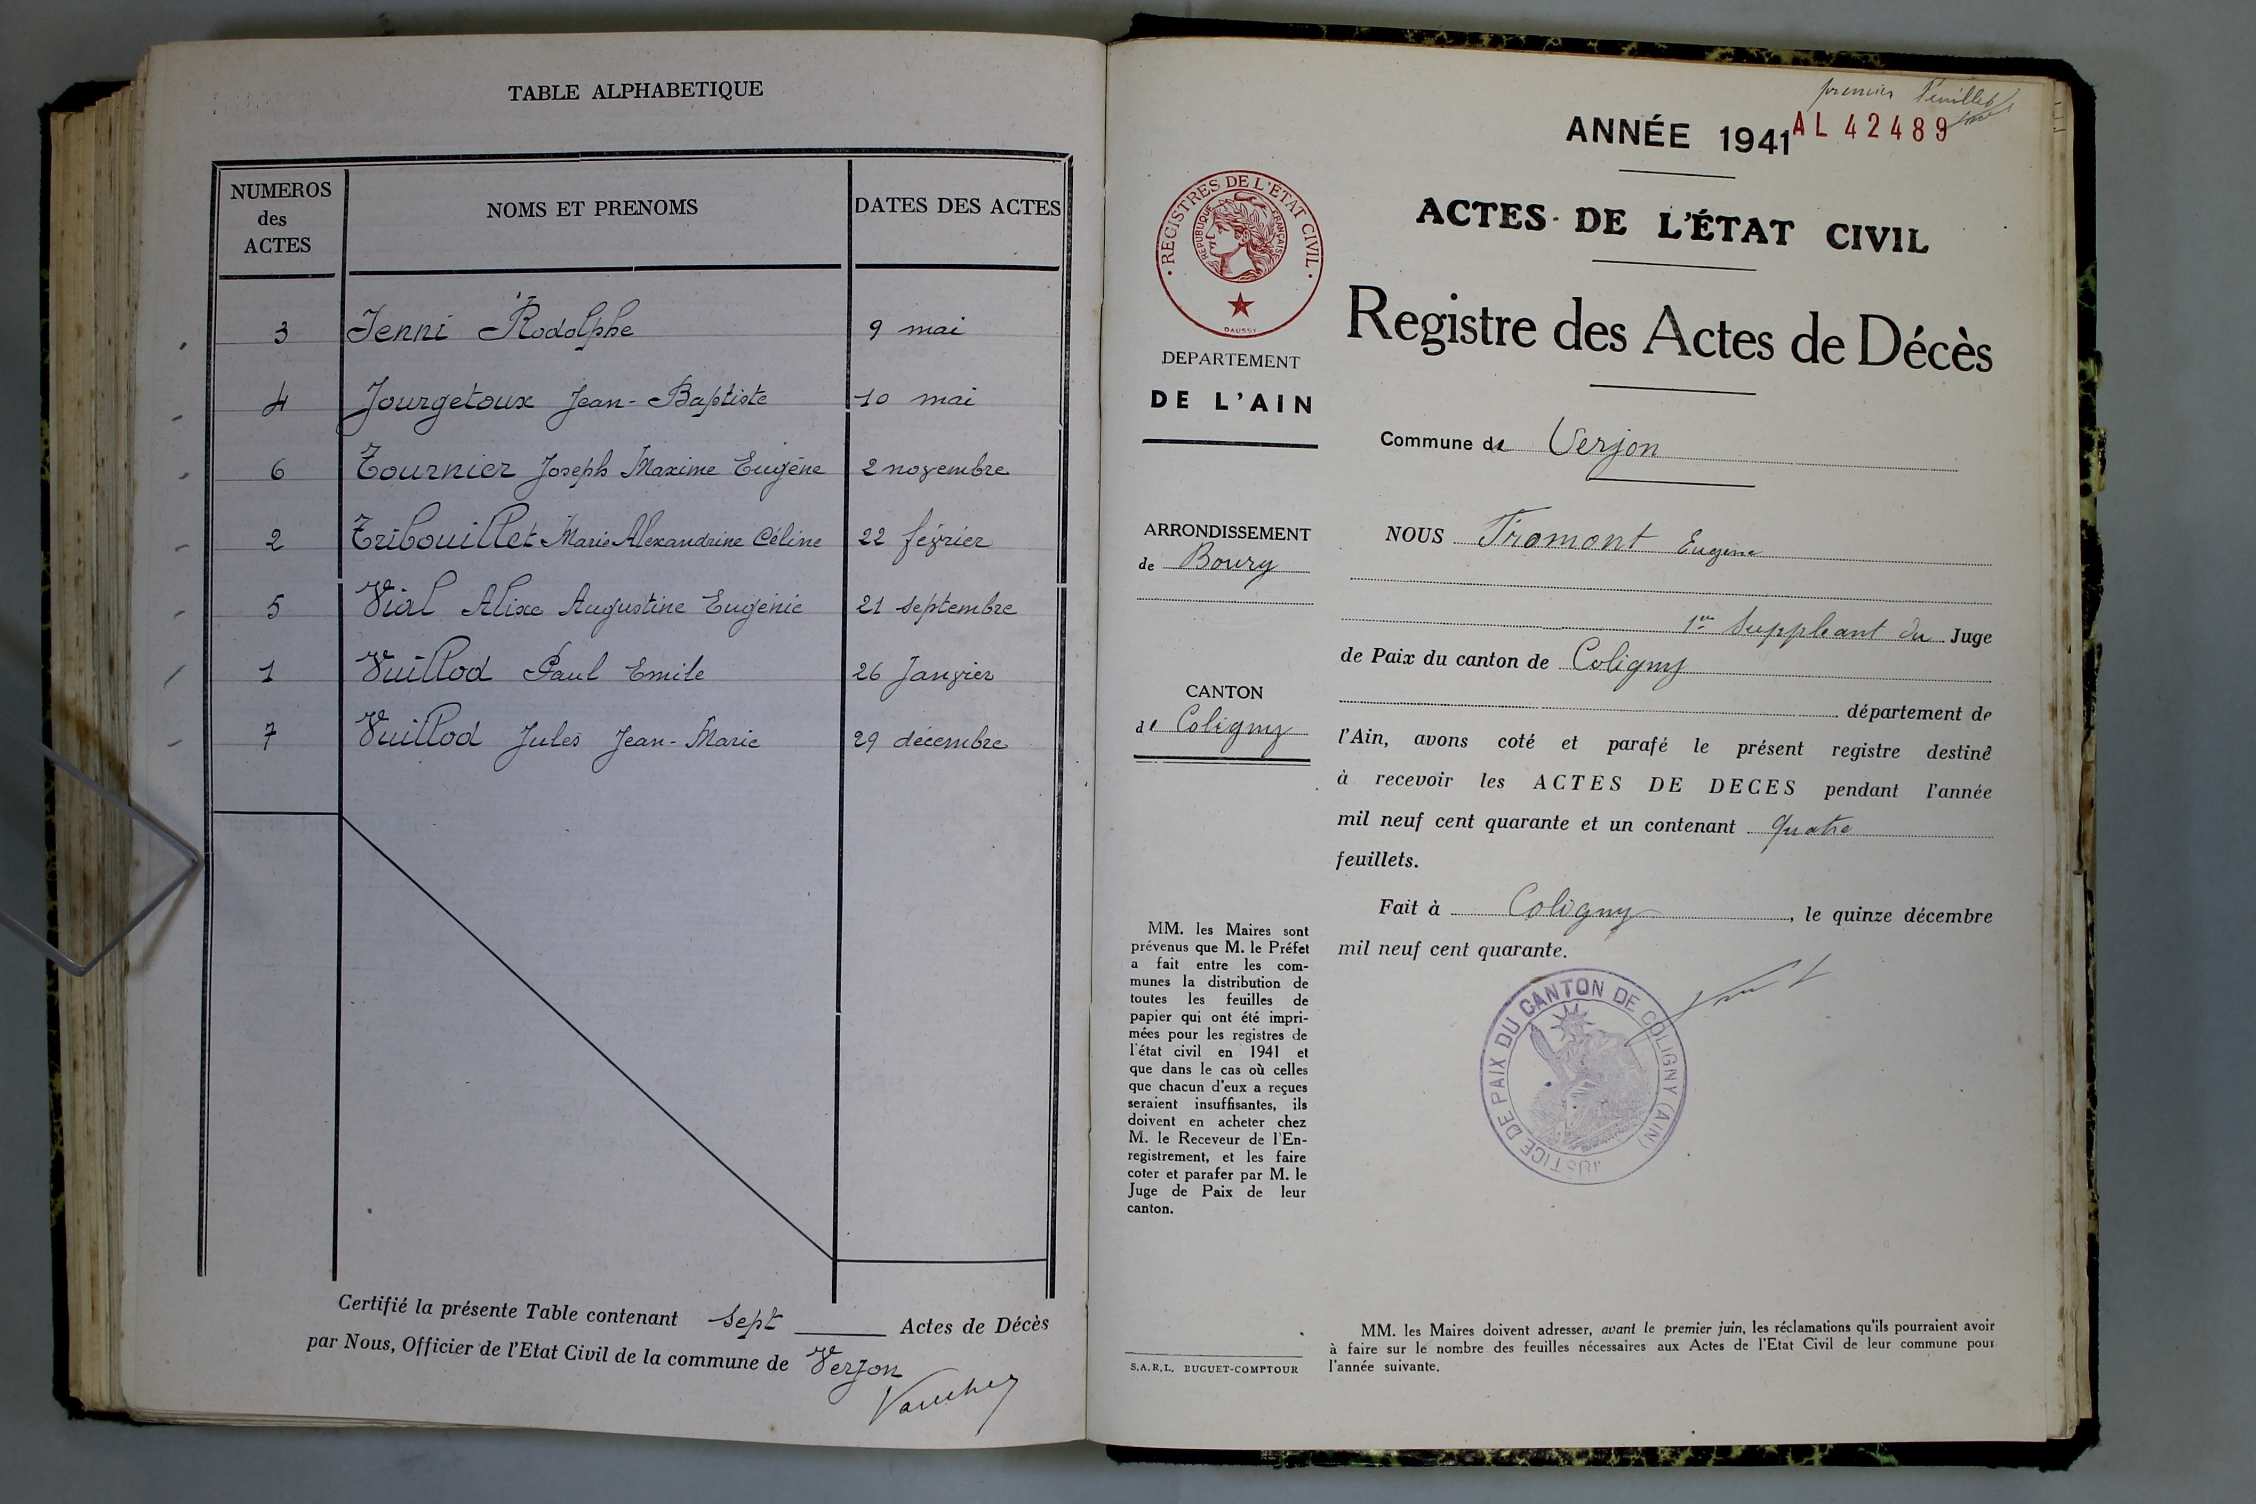 TABLE ALPHABETIQUE
NUMEROS des ACTES
NOMS ET PRENOMS
DATES DES ACTES
3 Jenni Rodolphe 9 mai
4 Jourgetoux Jean-Baptiste 10 mai
6 Tournier Joseph Maxime Eugène 2 novembre
2 Tribouillet Marie Alexandrine Céline 22 février
5 Vial Alixe Augustine Eugénie 21 septembre
1 Vuillod Paul Emile 26 Janvier
7 Vuillod Jules Jean-Marie 29 décembre
Certifié la présente Table contenant sept Actes de Décès
par Nous, Officier de l'Etat Civil de la commune de Verjon
premier feuillet
ANNÉE 1941
AL 42489
ACTES DE L'ÉTAT CIVIL
Registre des Actes de Décès
REGISTRES DE L'ETAT CIVIL
REPUBLIQUE FRANÇAISE
DAUSSY
DEPARTEMENT
DE L'AIN
ARRONDISSEMENT
de Bourg
CANTON
de Coligny
MM. les Maires sont
prévenus que M. le Préfet
a fait entre les com-
munes la distribution de
toutes les feuilles de
papier qui ont été impri-
mées pour les registres de
l'état civil en 1941 et
que dans le cas où celles
que chacun d'eux a reçues
seraient insuffisantes, ils
doivent en acheter chez
M. le Receveur de l'En-
registrement, et les faire
coter et parafer par M. le
Juge de Paix de leur
canton.
S.A.R.L. BUGUET-COMPTOUR
Commune de Verjon
NOUS Fromont Eugène
1er Suppléant du Juge
de Paix du canton de Coligny
département de
l'Ain, avons coté et parafé le présent registre destiné
à recevoir les ACTES DE DECES pendant l'année
mil neuf cent quarante et un contenant quatre
feuillets.
Fait à Coligny, le quinze décembre
mil neuf cent quarante.
JUSTICE DE PAIX DU CANTON DE COLIGNY (AIN)
MM. les Maires doivent adresser, avant le premier juin, les réclamations qu'ils pourraient avoir
à faire sur le nombre des feuilles nécessaires aux Actes de l'Etat Civil de leur commune pour
l'année suivante.